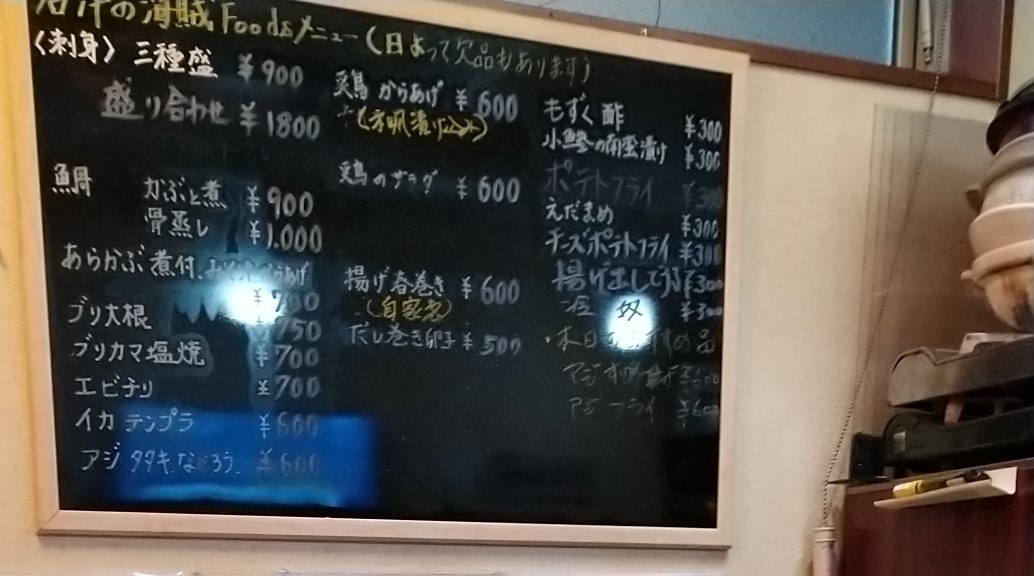 の海賊 Foodsメニュー(日よって欠品もあります)
〈刺身〉 三種盛 ¥900
盛り合わせ ¥1800
かぶと煮 ¥900
骨蒸し ¥1.000
あらかぶ煮付
ブリ大根 ¥750
ブリカマ塩焼 ¥700
エビチリ ¥700
イカテンプラ ¥600
アジタタキ.なめろう. ¥600
鶏からあげ ¥600
鶏のサラダ ¥600
揚げ春巻き ¥600
(自家製)
だし巻き卵子 ¥500
もずく酢 ¥300
小鯵の南蛮漬け ¥300
ポテトフライ ¥300
えだまめ ¥300
チーズポテトフライ ¥300
揚げ出し
¥300
・本日 の品
アジフライ ¥600